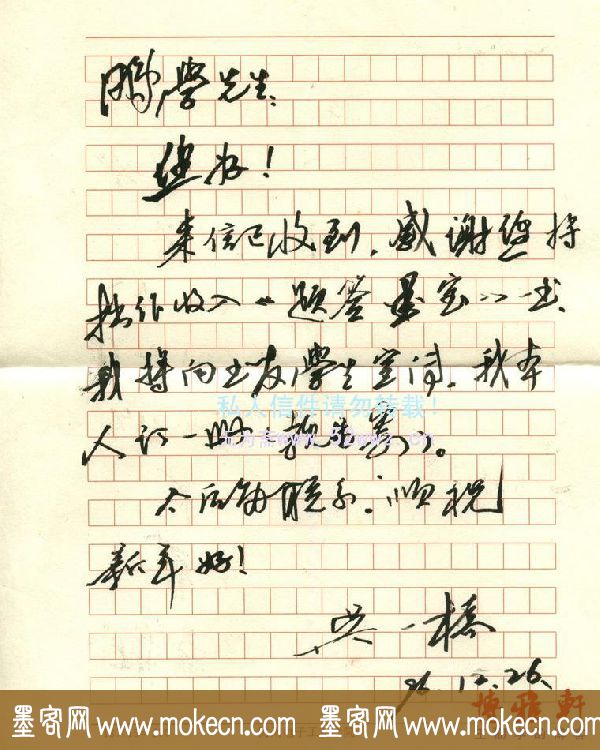 鹏学先生:
您好!
来信已收到,感谢您将
拙作收入《题签墨宝》一书,
我将向书友、学生宣传,我本
人订一册《
今后多联系,顺祝
新年好!
吴一桥
96.12.26.
私人信件请勿转载!
博雅轩
墨客网 www.mokecn.com 墨客网 www.mokecn.com